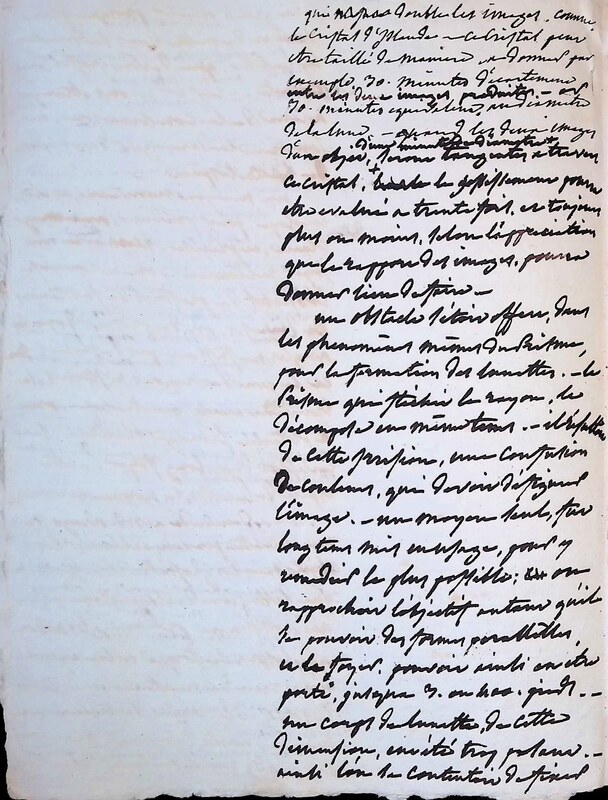 double les images. comme
le Cristal d'Islande - ce Cristal peut
etre taillé de maniere a donner par
exemple 30. minutes d'écartement
entre les deux images produites. - or
30. minutes equivalent, au diametre
de la lune, - quand les deux images
d'un objet, d'une minute de diametre seront tangentes a travers
ce cristal, le grossissement pourra
etre evalué a trente fois, et toujours
plus ou moins, selon l'appreciation
que le rapport des images, pourra
donner lieu de faire -
un obstacle s'étoit offert, dans
les phenomènes mêmes du Prisme,
pour la formation des lunettes. - le
Prisme qui fléchit le rayon, le
décompose en même tems. - il résulte
de cette une confusion
de couleurs, qui devoit défigurer
l'image. - un moyen seul, fut
longtems mis en usage, pour y
remedier le plus possible; on
rapprochoit l'objectif autant qu'il
se pouvoit des formes paralleles,
et le foyer, pouvoit ainsi en etre
porté, jusqu'a 3. ou 400. pieds. -
un corps de lunette, de cette
dimension, eut été trop pesant. -
ainsi l'on se contentoit de fixer